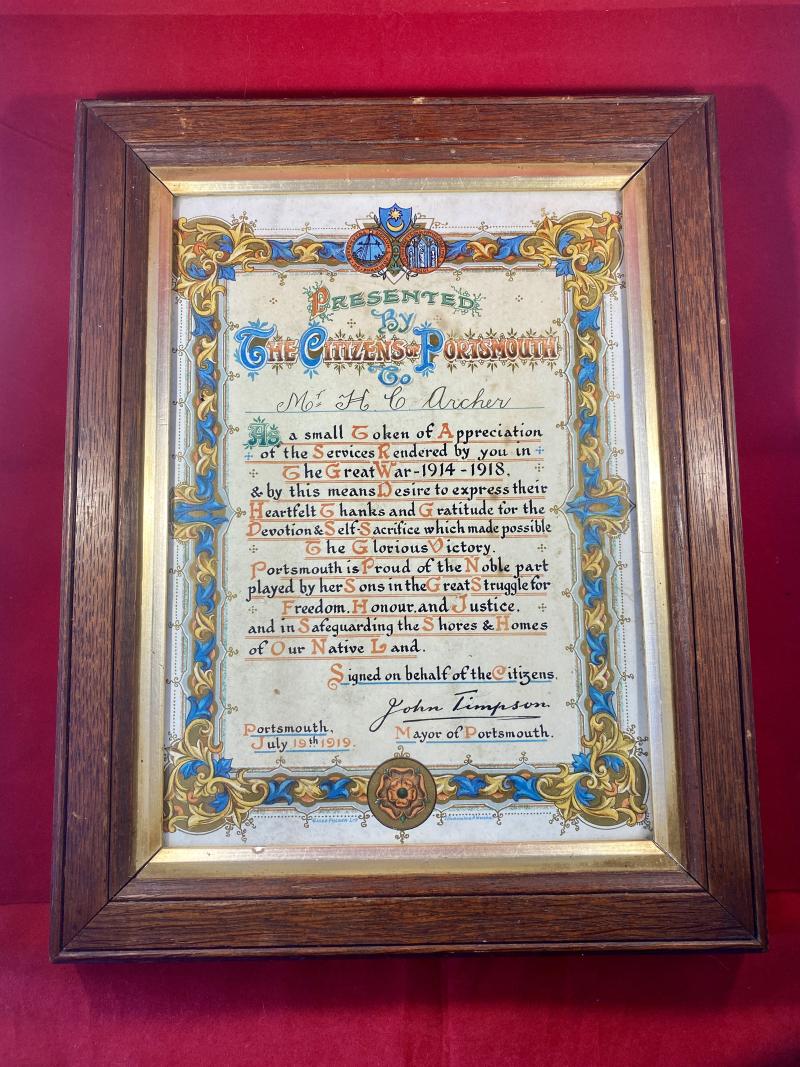 PRESENTED
By
THE CITIZENS OF PORTSMOUTH
To
Mr H C Archer
As a small Token of Appreciation
of the Services Rendered by you in
The Great War - 1914 - 1918,
& by this means Desire to express their
Heartfelt Thanks and Gratitude for the
Devotion & Self-Sacrifice which made possible
The Glorious Victory.
Portsmouth is Proud of the Noble part
played by her Sons in the Great Struggle for
Freedom, Honour, and Justice,
and in Safeguarding the Shores & Homes
of Our Native Land.
Signed on behalf of the Citizens.
John Timpson
Portsmouth,
Mayor of Portsmouth.
July 19th 1919.